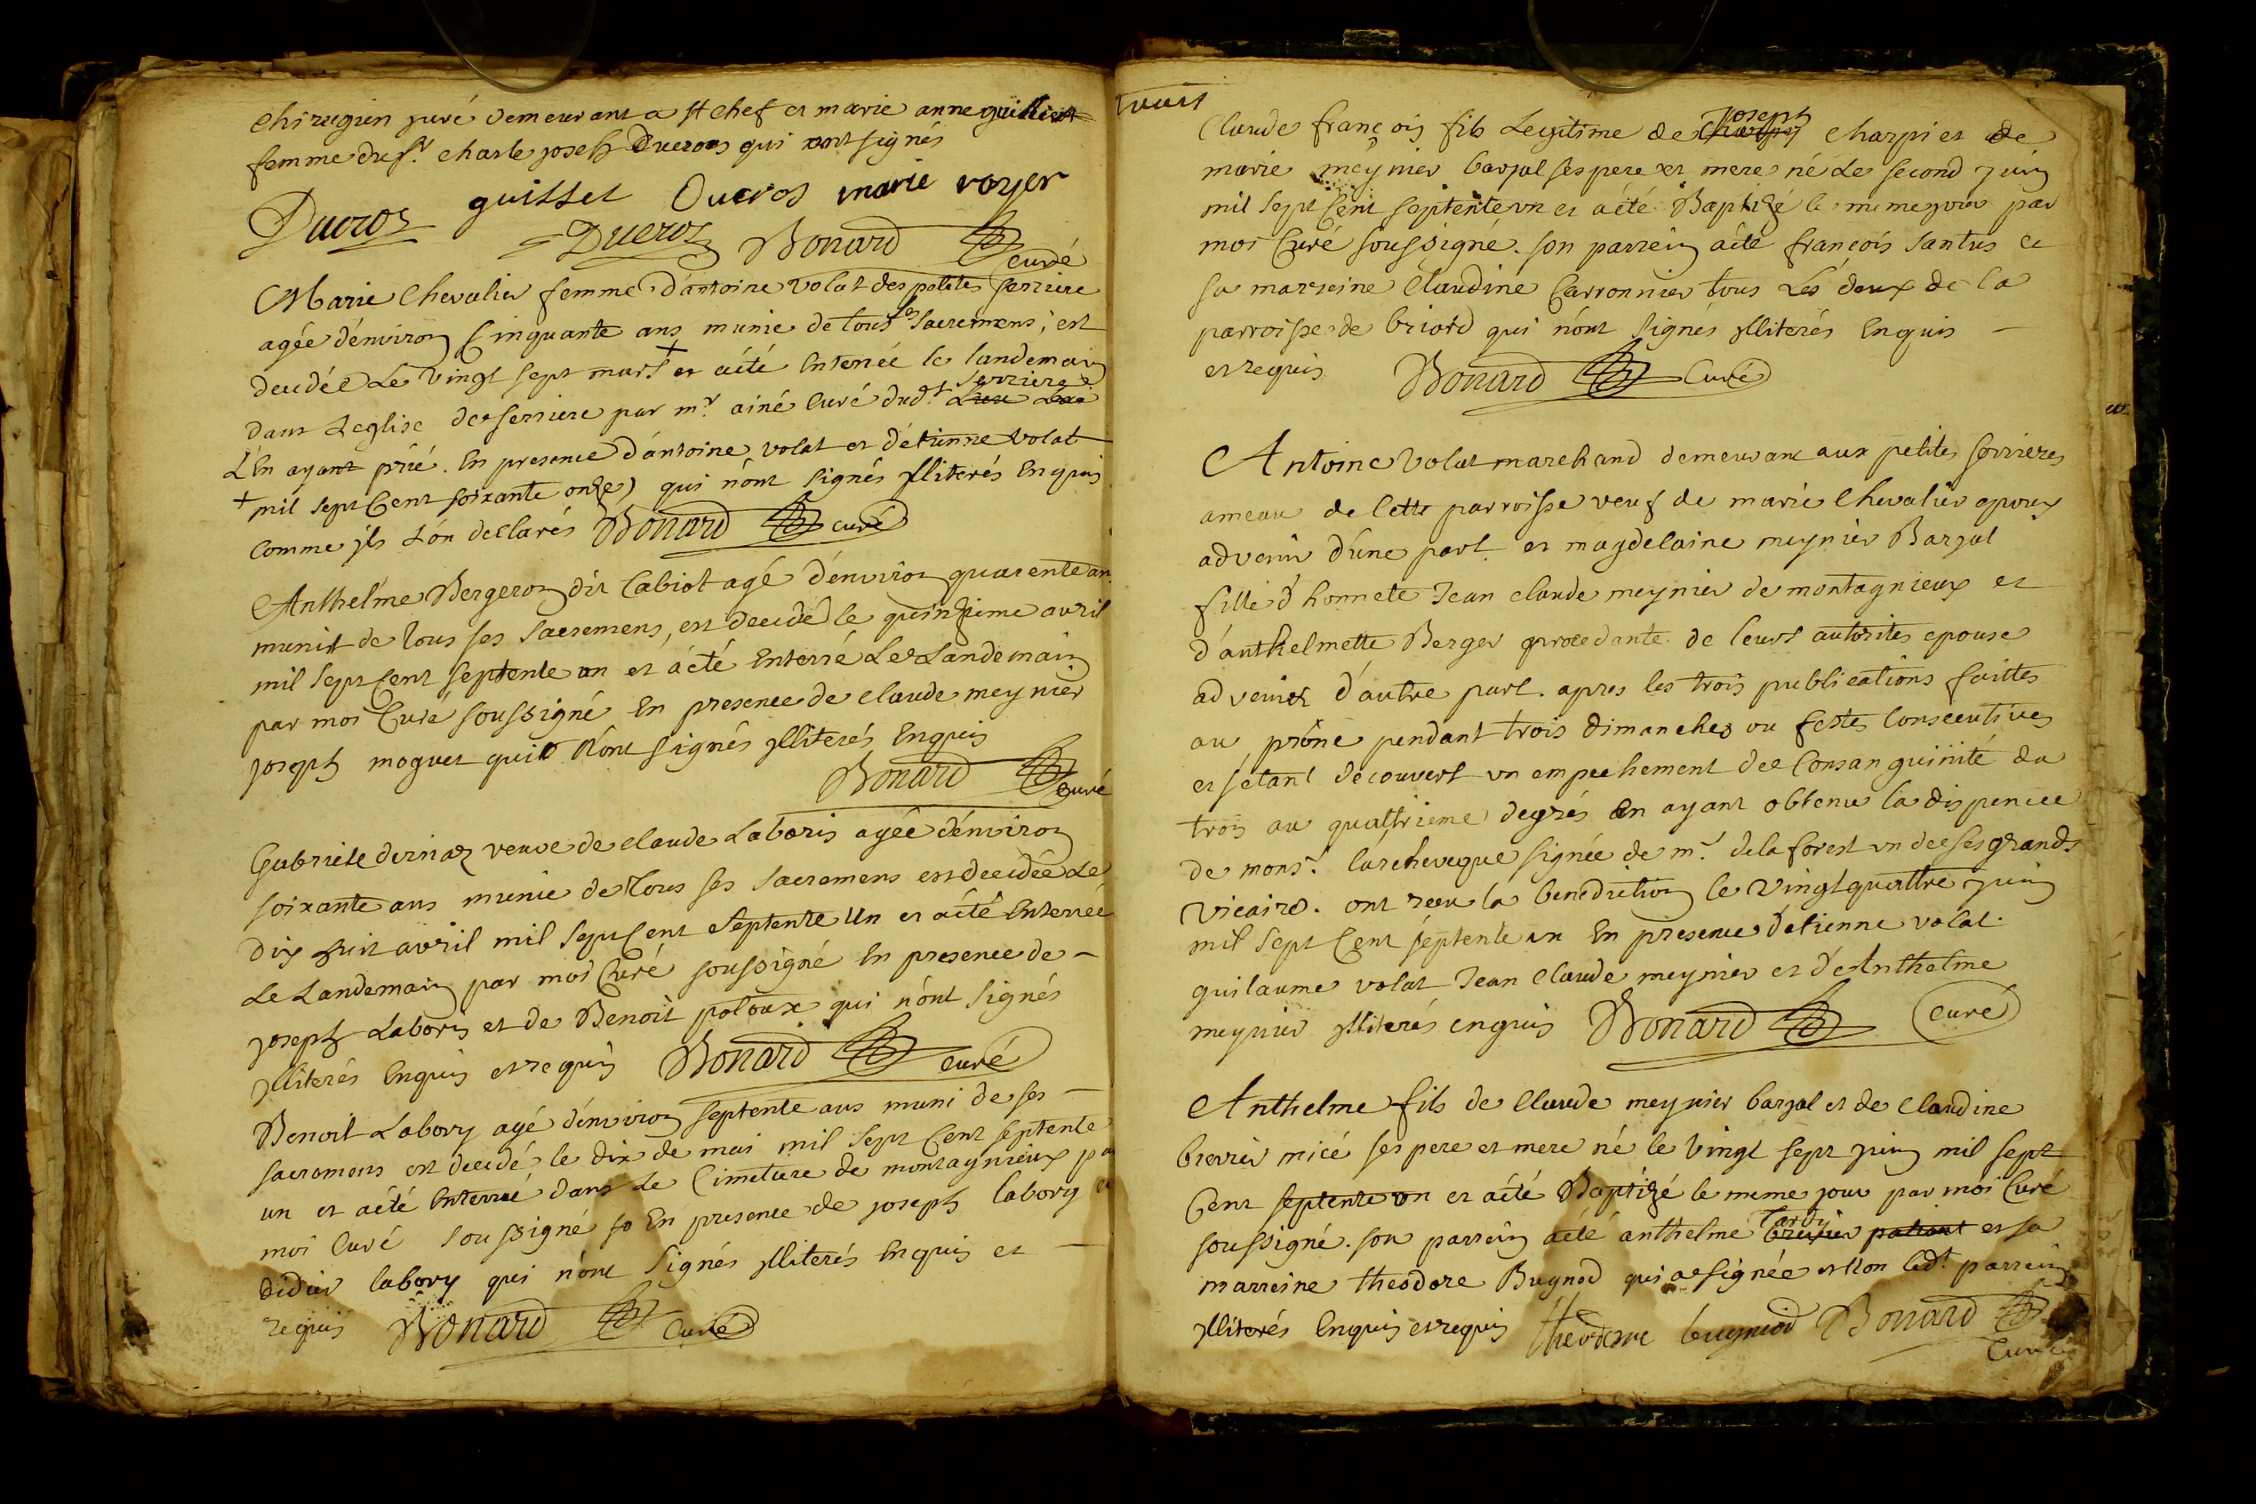 chirugien juré demeurant a st chef et marie anne guillet
femme du sr. charle joseph Ducros qui ont signés
guillet Ducros marie royer
Ducros Ducros Bonard curé
Marie Chevalier femme d'antoine volat des petites serriere
agée d'environ Cinquante ans munie de tous les sacremens, est
decedée Le vingt sept mars + et a été Enterrée le landemain
dans Leglise de serriere par mr. ainé Curé dud.t serriere
L'En ayant prié. En presence d'antoine volat et d'étienne volat
+ mil sept Cent soixante onze) qui n'ont signés jlliterés Enquis
Comme jls L'on declarés Bonard curé
Anthelme Bergeron dit Cabiot agé d'environ quarente an
munit de tous ses sacremens, est decedé le quinzieme avril
mil sept Cent septente un et a été Enterré Le Landemain
par moi Curé soussigné En presence de claude meynier
joseph moguet qui n'ont signés jlliterés Enquis
Bonard curé
Gabriele dernaz veuve de claude Laboris agée d'environ
soixante ans munie de tous ses sacremens est decedée Le
Dix huit avril mil sept Cent septente un et a été Enterrée
Le Landemain par moi Curé soussigné En presence de -
joseph Laboris et de Benoit poloux qui n'ont signés
jlliterés Enquis et requis Bonard curé
Benoit Labory agé d'environ septente ans muni de ses -
sacremens est decedé le dix de mai mil sept Cent septente
un et a été Enterré dans Le Cimetiere de montagnieux pa
moi Curé soussigné En presence de joseph labory et
didier labory qui n'ont signés jlliterés Enquis et -
requis Bonard Curé
Claude françois fils Legitime de joseph Charpi et de
marie meynier barjal ses pere et mere né Le second juin
mil sept Cent septente un et a été Baptizé le meme jour par
moi Curé soussigné. son parrein a été françois santus et
sa marreine Claudine Carronnier tous Les deux de la
parroisse de briord qui n'ont signés jlliterés Enquis -
et requis Bonard Curé
Antoine volat marchand demeurant aux petites serrieres
ameau de Cette parroisse veuf de marie Chevalier epoux
advenir d'une part. et magdelaine meynier Barjal
fille d'honnete Jean claude meynier de montagnieux et
d'anthelmette Berger procedante de leurs autorites epouse
advenir d'autre part. apres les trois publications faittes
au prône pendant trois dimanches ou festes Consecutives
et setant decouvert un empechement de Consanguinité du
trois au quattrieme degrés en ayant obtenu la dispence
de monsr. larcheveque signée de mr. de la forest un de ses grands
vicaires. ont recu la benediction le vingt quattre juin
mil sept Cent septente un En presence d'etienne volat.
guilaume volat Jean Claude meynier et d'Anthelme
meynier jlliterés enquis Bonard Curé
Anthelme fils de Claude meynier barjal et de Claudine
brevier micé ses pere et mere né le vingt sept juin mil sept
Cent septente un et a été Baptizé le meme jour par moi Curé
soussigné. son parrein a été anthelme Tardy et sa
marreine theodore Bugnod qui a signée et non led.t parrein
jlliterés Enquis et requis theodore bugniod Bonard
Curé